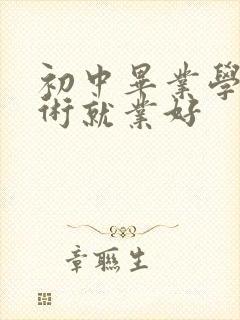 初中畢業學
術就業好
章聯生